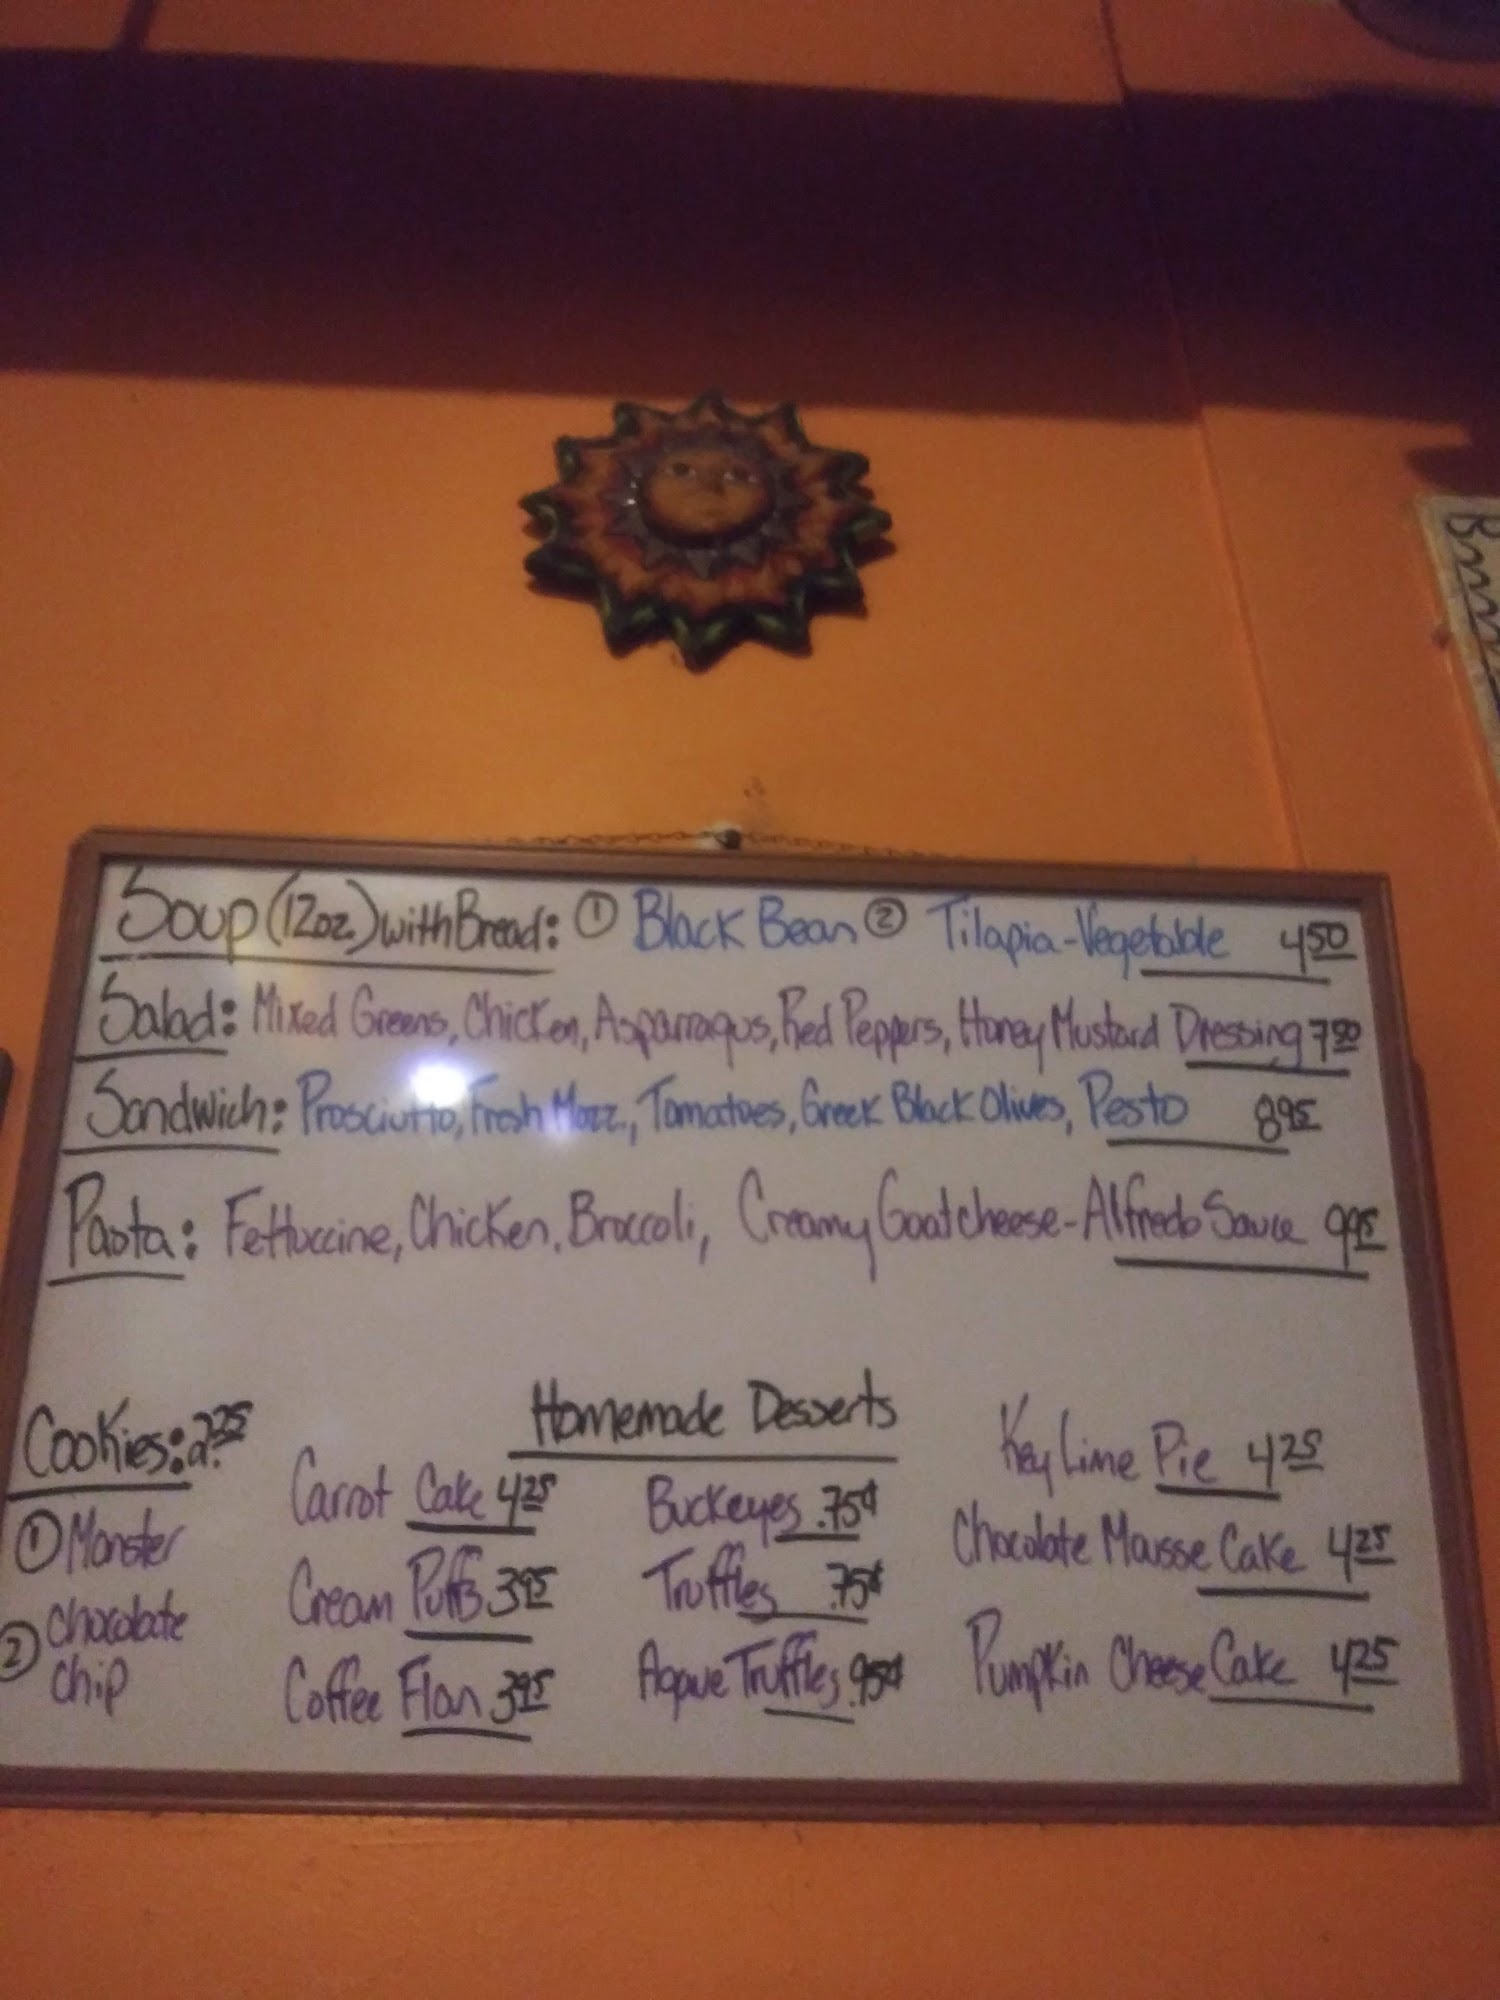 Soup (12oz.) with Bread: ① Black Bean ② Tilapia-Vegetable 4 50
Salad: Mixed Greens, Chicken, Asparragus, Red Peppers, Honey Mustard Dressing
Sandwich: Prosciutto, Fresh Mozz., Tomatoes, Greek Black Olives, Pesto 8 95
Pasta: Fettuccine, Chicken, Broccoli, Creamy Goatcheese-Alfredo Sauce 9 95
Homemade Desserts
Cookies:
① Monster
② Chocolate
Chip
Carrot Cake 4 25
Cream Puffs 3 95
Coffee Flan 3 95
Buckeyes .75¢
Truffles .75¢
Agave Truffles .95¢
Key Lime Pie 4 25
Chocolate Mousse Cake 4 25
Pumpkin Cheese Cake 4 25